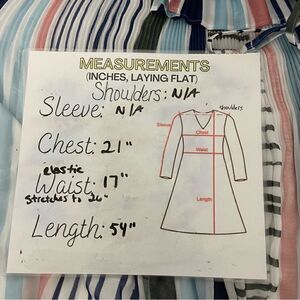 MEASUREMENTS
(INCHES, LAYING FLAT)
Shoulders: N/A
Sleeve: N/A
shoulders
Sleeve
Chest
Chest: 21"
Waist
elastic
Waist: 17"
stretches to 26"
Length
Length: 54"